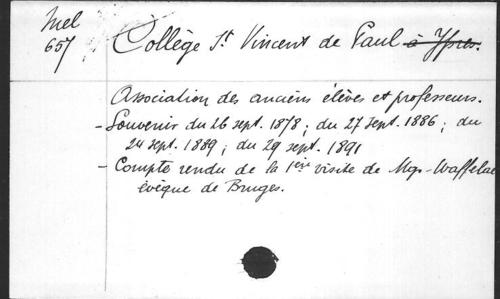 Mel
657
Collège St Vincent de Paul à Ypres.
Association des anciens élèves et professeurs.
- Souvenir du 26 sept. 1878; du 27 sept. 1886; du
24 sept. 1889; du 29 sept. 1891
- Compte rendu de la 1ère visite de Mgr Waffelae
évêque de Bruges.